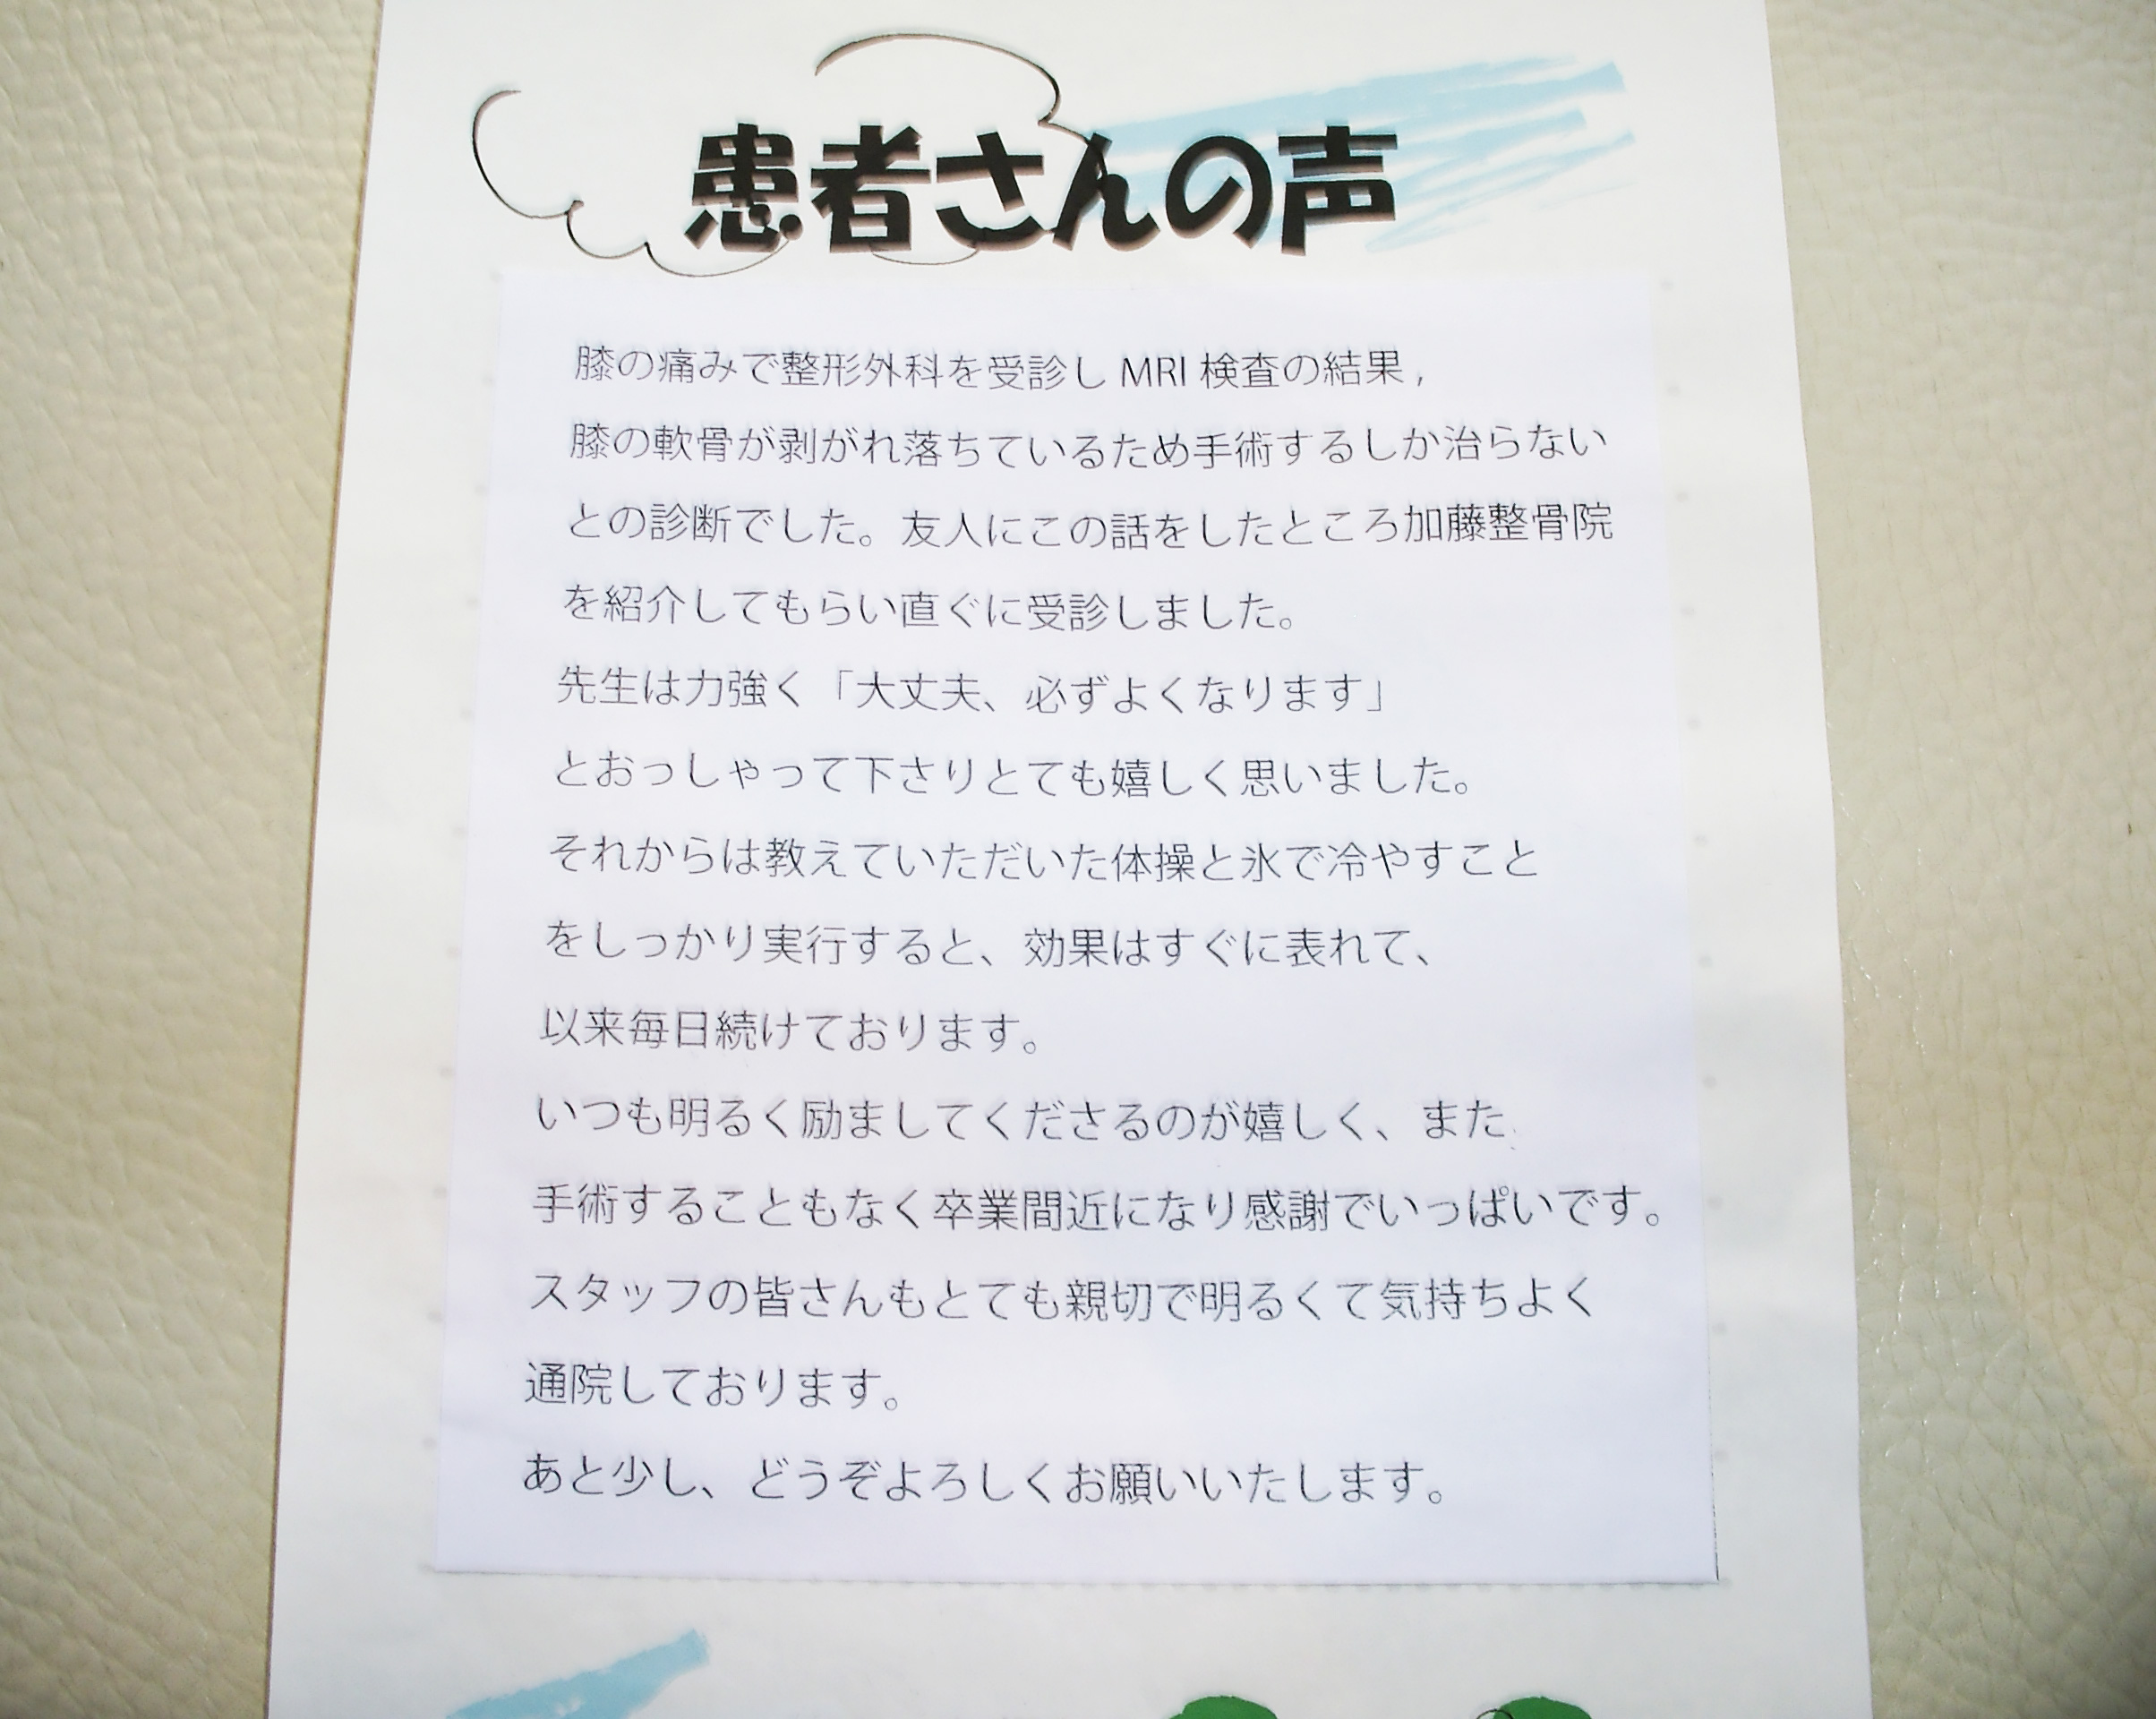 患者さんの声
膝の痛みで整形外科を受診し MRI 検査の結果,
膝の軟骨が剥がれ落ちているため手術するしか治らない
との診断でした。友人にこの話をしたところ加藤整骨院
を紹介してもらい直ぐに受診しました。
先生は力強く「大丈夫、必ずよくなります」
とおっしゃって下さりとても嬉しく思いました。
それからは教えていただいた体操と氷で冷やすこと
をしっかり実行すると、効果はすぐに表れて、
以来毎日続けております。
いつも明るく励ましてくださるのが嬉しく、また、
手術することもなく卒業間近になり感謝でいっぱいです。
スタッフの皆さんもとても親切で明るくて気持ちよく
通院しております。
あと少し、どうぞよろしくお願いいたします。